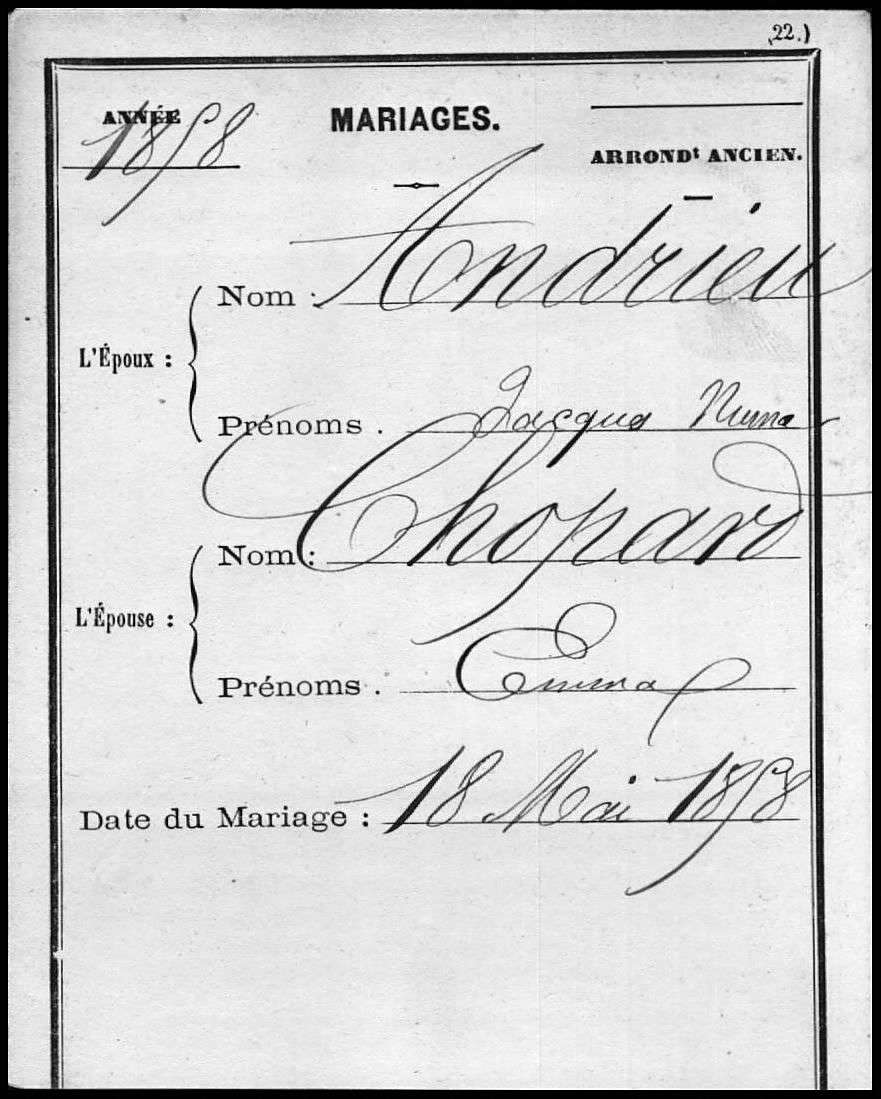 (22.)
ANNÉE
1858
MARIAGES.
ARRONDt ANCIEN.
L'Époux :
Nom : Andrieu
Prénoms . Jacques Numa
L'Épouse :
Nom : Chopard
Prénoms . Emma
Date du Mariage : 18 Mai 1858